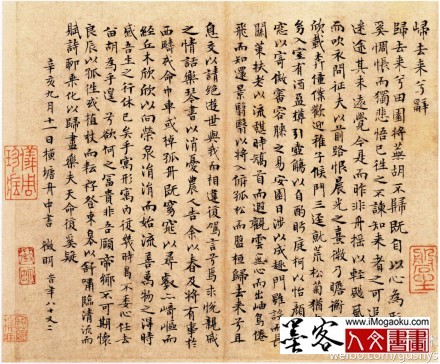 歸去來兮辭
歸去來兮田園將蕪胡不歸既自以心為形
奚惆悵而獨悲悟已往之不諫知來者之可追
迷途其未遠覺今是而昨非舟遙以輕颺
而吹衣問征夫以前路恨晨光之熹微乃瞻衡
欣載奔僮僕歡迎稚子候門三逕就荒松菊猶
幼入室有酒盈樽引壺觴以自酌眄庭柯以怡顏
窗以寄傲審容膝之易安園日涉以成趣門雖設而
關策扶老以流憩時矯首而遐觀雲無心而出岫鳥倦
飛而知還景翳翳以將入撫孤松而盤桓歸去來兮
息交以絕遊世與我而相違復駕言兮焉求悅親戚
之情話樂琴書以消憂農人告余以春及將有事於
西疇或命巾車或棹孤舟既窈窕以尋壑亦崎嶇而
經丘木欣欣以向榮泉涓涓而始流善萬物之得時
感吾生之行休已矣乎寓形宇內復幾時曷不委心任去
留胡為乎遑遑兮欲何之富貴非吾願帝鄉不可期
良辰以孤往或植杖而耘耔登東皋以舒嘯臨清流而
賦詩聊乘化以歸盡樂夫天命復奚疑
辛亥九月十一日橫塘舟中書 徵明 時年八十又二
www.iMogaoku.com
墨客
人文艺术